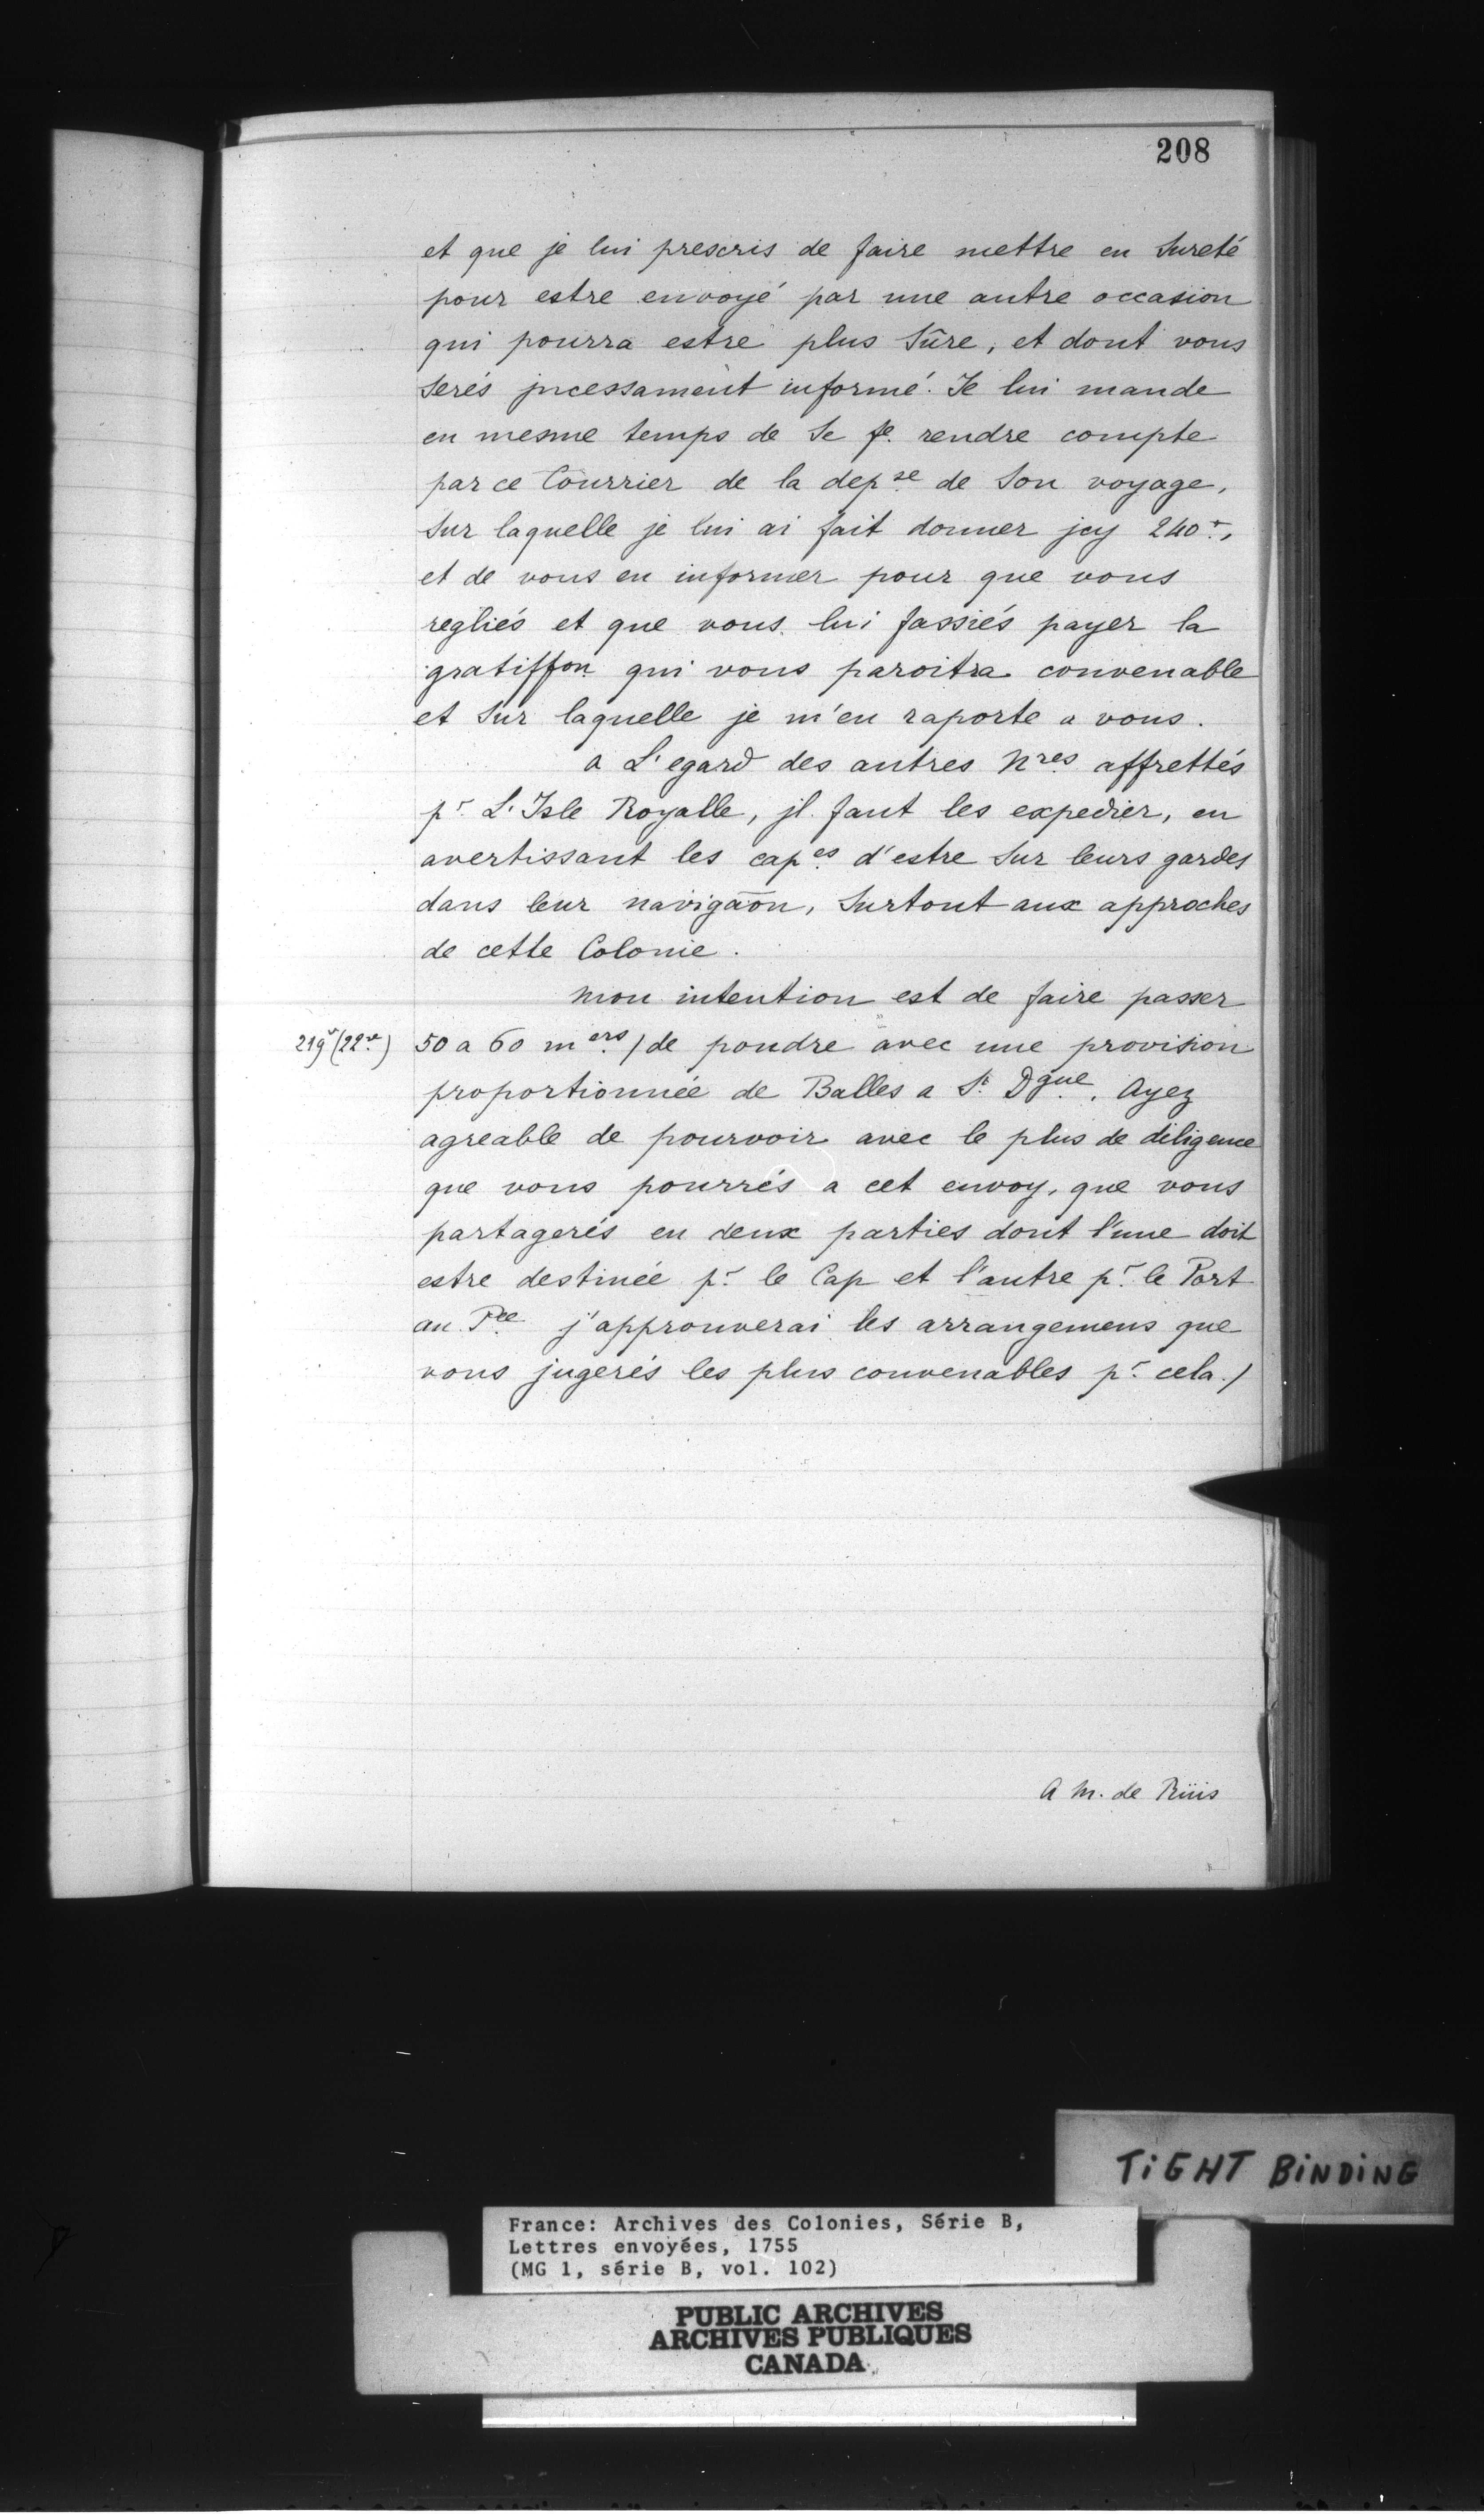 208
et que je lui prescris de faire mettre en Sureté
pour estre envoyé par une autre occasion
qui pourra estre plus Sûre, et dont vous
Serés jncessament informé. Je lui mande
en mesme temps de Se fe. rendre compte
par ce Courrier de la depse de Son voyage,
Sur laquelle je lui ai fait donner jcy 240#,
et de vous en informer pour que vous
regliés et que vous lui fassiés payer la
gratiffon qui vous paroitra convenable
et Sur laquelle je m'en raporte a vous.
a L'egard des autres Nres affrettés
pr L'Isle Royalle, jl faut les expedier, en
avertissant les capes d'estre Sur leurs gardes
dans leur navigaōn, Surtout aux approches
de cette Colonie.
Mon intention est de faire passer
219v (22ve) 50 a 60 mers / de poudre avec une provision
proportionnée de Balles a St Dgue. Ayez
agreable de pourvoir avec le plus de diligence
que vous pourrés a cet envoy, que vous
partagerés en deux parties dont l'une doit
estre destinée pr le Cap et l'autre pr le Port
au Pce j'approuverai les arrangemens que
vous jugerés les plus convenables pr cela./
A M. de Rüis
TiGHT BiNDiNG
France: Archives des Colonies, Série B,
Lettres envoyées, 1755
(MG 1, série B, vol. 102)
PUBLIC ARCHIVES
ARCHIVES PUBLIQUES
CANADA